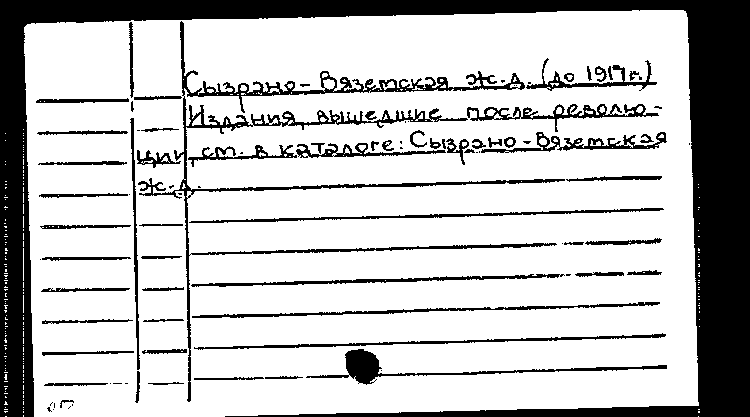 Сызрано-Вяземская ж.д. (до 1917г.)
Издания, вышедшие после револю-
ции, см. в каталоге: Сызрано-Вяземская
ж.д.